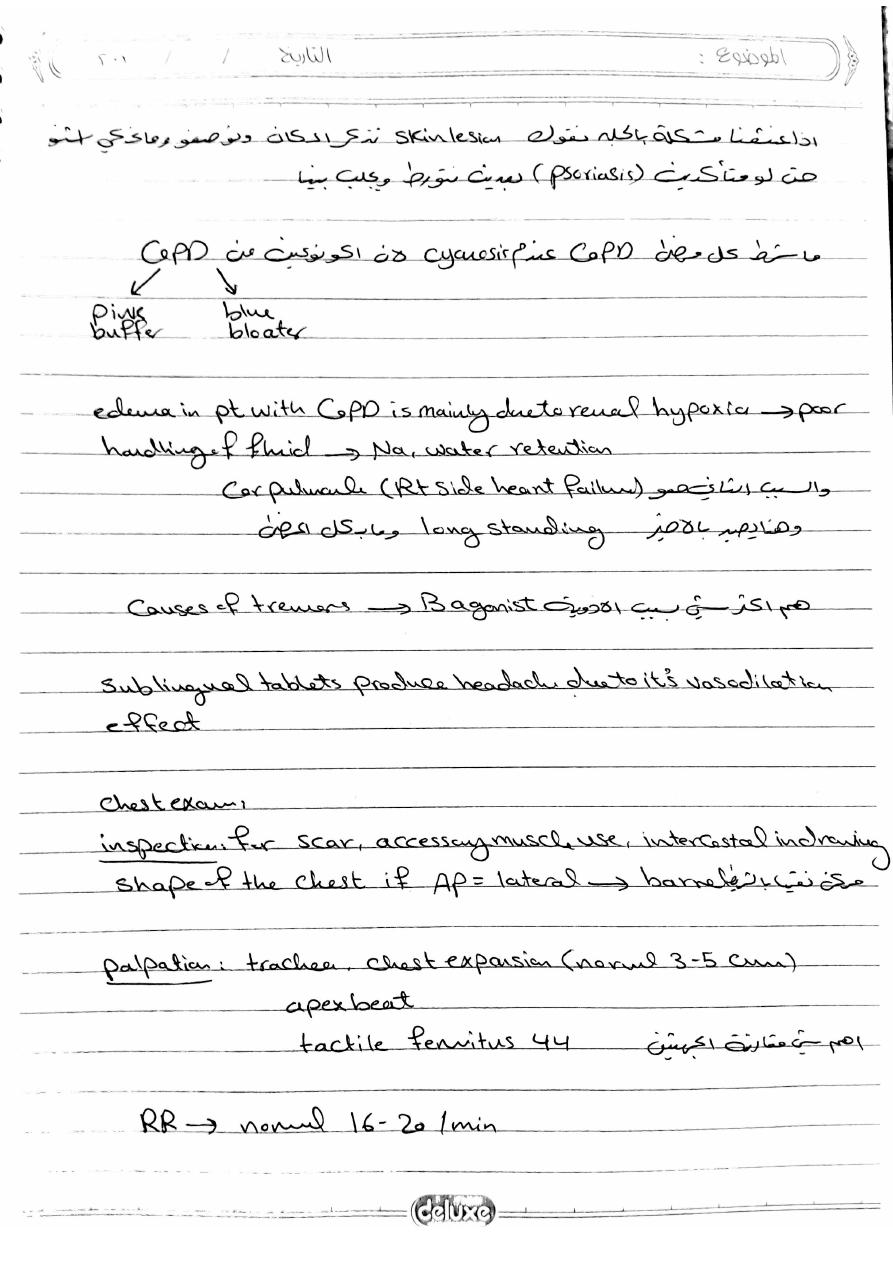 الموضوع : التاريخ / / ٢٠١
اذا عنقنا مشكلة بالجلد نقول skin lesion نذكر المكان ونوصفو وما نحكي اشو
حتى لو متأكدين (psoriasis) بعدين نتورط وبجلب بينا
ما شرط كل مرضى COPD عندهم cyanosis لان اكو نوعين من COPD
pink buffer
blue bloater
edema in pt with COPD is mainly due to renal hypoxia → poor
handling of fluid → Na, water retention
والسبب الثاني هو Cor pulmonale (Rt side heart failure)
وهنا يصير بالاخير long standing وما بكل المرضى
Causes of tremors → B agonist هم اكثر شي بسبب الادوية
Sublingual tablets produce headache due to it's vasodilation
effect
Chest exam:
inspection: for scar, accessory muscle use, intercostal indrawing
shape of the chest if AP = lateral → barrel
palpation: trachea, chest expansion (normal 3-5 cm)
apex beat
tactile fremitus 44 اهم شي مقارنة الجهتين
RR → normal 16-20 /min
deluxe